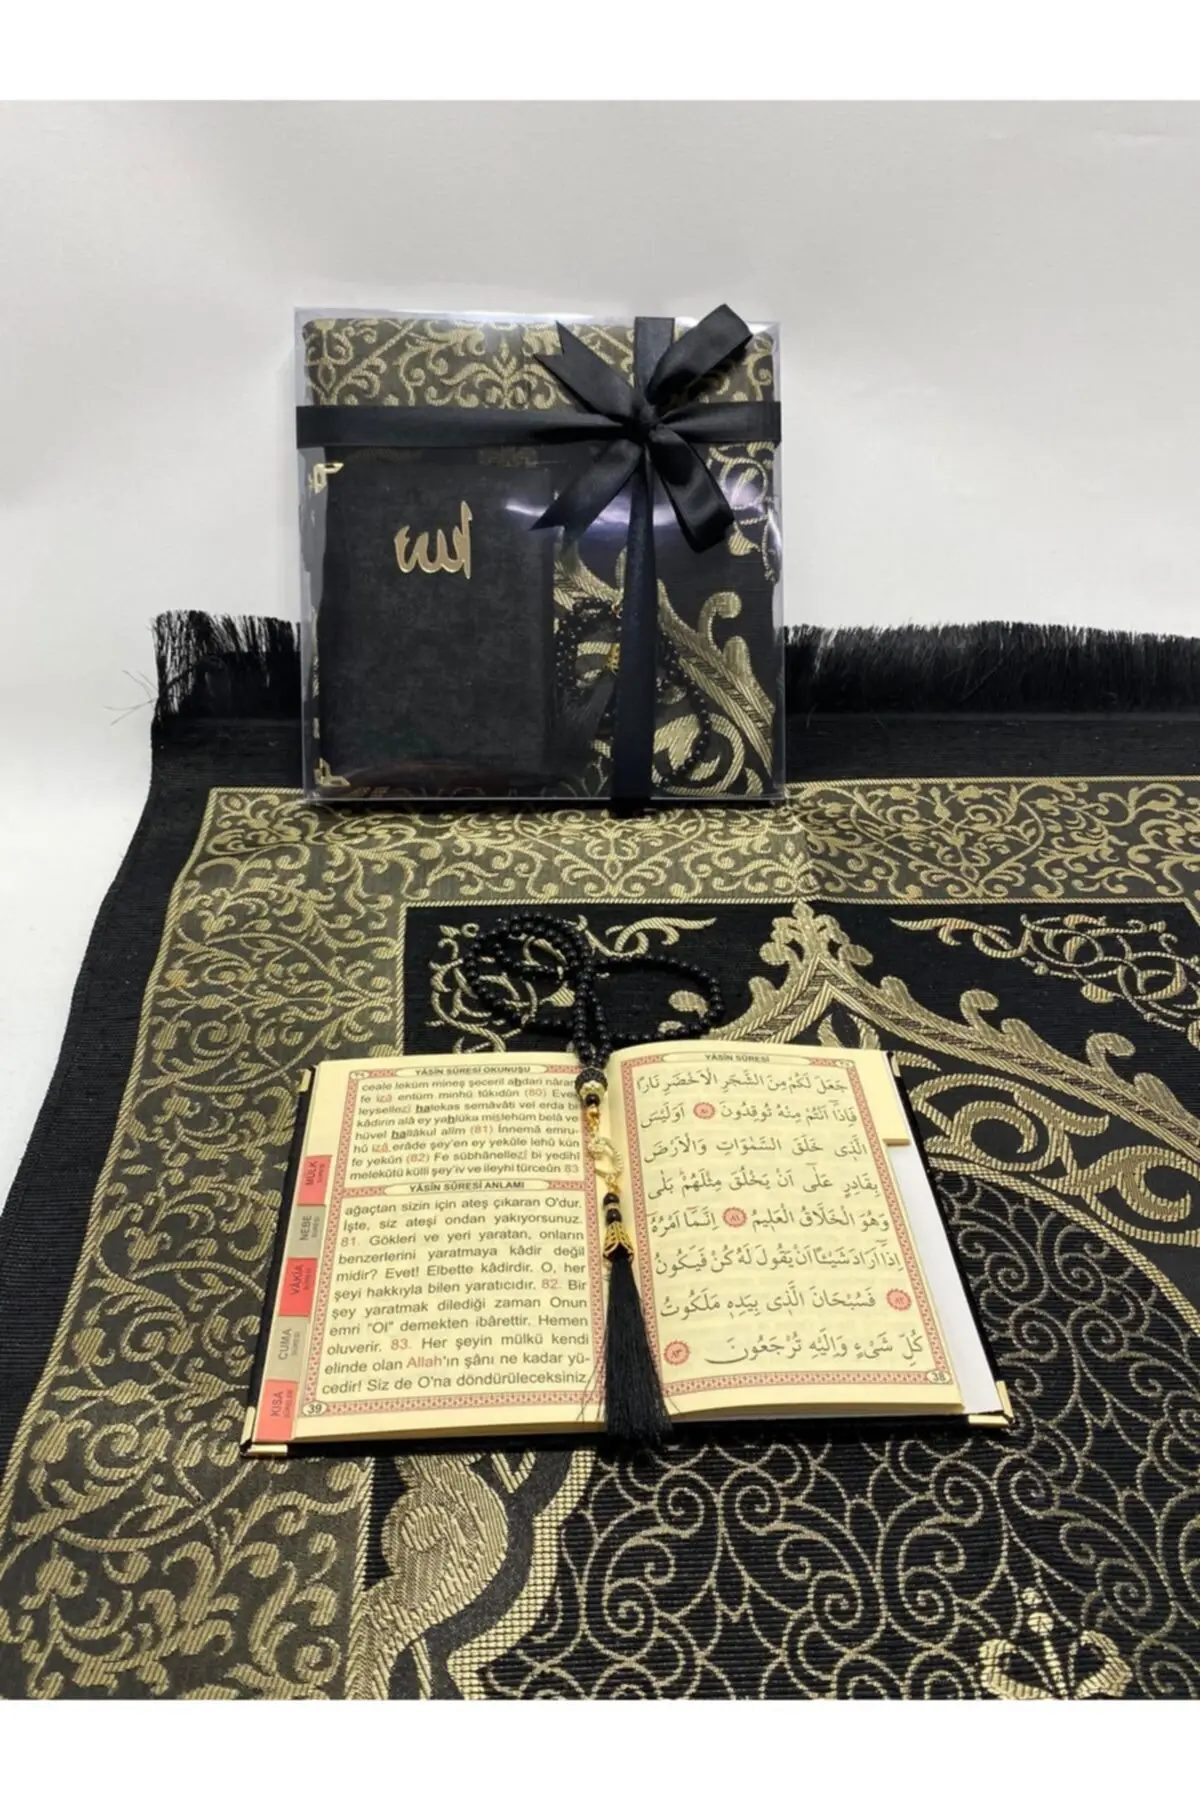 الله
YÂSÎN SÛRESİ OKUNUŞU
ceale leküm mineş şeceril ahdari nâran
fe izâ entüm minhü tûkıdûn (80) Eve
leysellezî halekas semâvâti vel erda bi
kâdirin alâ ey yahlüka mislehüm belâ ve
hüvel hallâkul alîm (81) İnnemâ emru-
hû izâ erâde şey'en ey yekûle lehû kün
fe yekûn (82) Fe sübhânellezî bi yedihî
melekûtü külli şey'iv ve ileyhi türceûn 83
YÂSÎN SÛRESİ ANLAMI
ağaçtan sizin için ateş çıkaran O'dur.
İşte, siz ateşi ondan yakıyorsunuz.
81. Gökleri ve yeri yaratan, onların
benzerlerini yaratmaya kâdir değil
midir? Evet! Elbette kâdirdir. O, her
şeyi hakkıyla bilen yaratıcıdır. 82. Bir
şey yaratmak dilediği zaman Onun
emri "Ol" demekten ibârettir. Hemen
oluverir. 83. Her şeyin mülkü kendi
elinde olan Allah'ın şânı ne kadar yü-
cedir! Siz de O'na döndürüleceksiniz.
39
MÜLK
NEBE
VÂKIA
CUMA
KISA
YÂSÎN SÛRESİ
جَعَلَ لَكُمْ مِنَ الشَّجَرِ الْاَخْضَرِ نَارًا
فَاِذَٓا اَنْتُمْ مِنْهُ تُوقِدُونَ ٨٠ اَوَلَيْسَ
الَّذٖى خَلَقَ السَّمٰوَاتِ وَالْاَرْضَ
بِقَادِرٍ عَلٰٓى اَنْ يَخْلُقَ مِثْلَهُمْ بَلٰى
وَهُوَ الْخَلَّاقُ الْعَلٖيمُ ٨١ اِنَّمَٓا اَمْرُهُٓ
اِذَٓا اَرَادَ شَيْـًٔا اَنْ يَقُولَ لَهُ كُنْ فَيَكُونُ
٨٢ فَسُبْحَانَ الَّذٖى بِيَدِهٖ مَلَكُوتُ
كُلِّ شَىْءٍ وَاِلَيْهِ تُرْجَعُونَ ٨٣
38